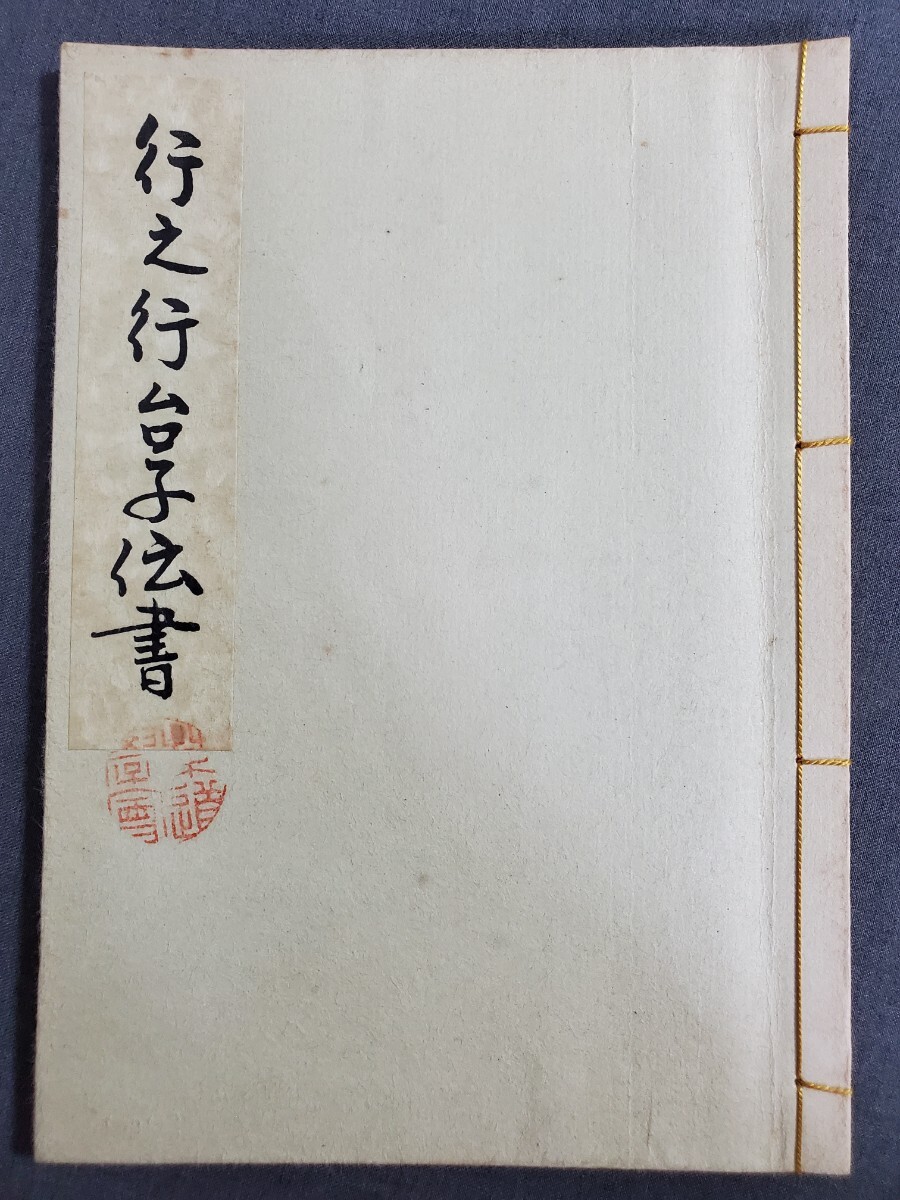 行之行台子伝書